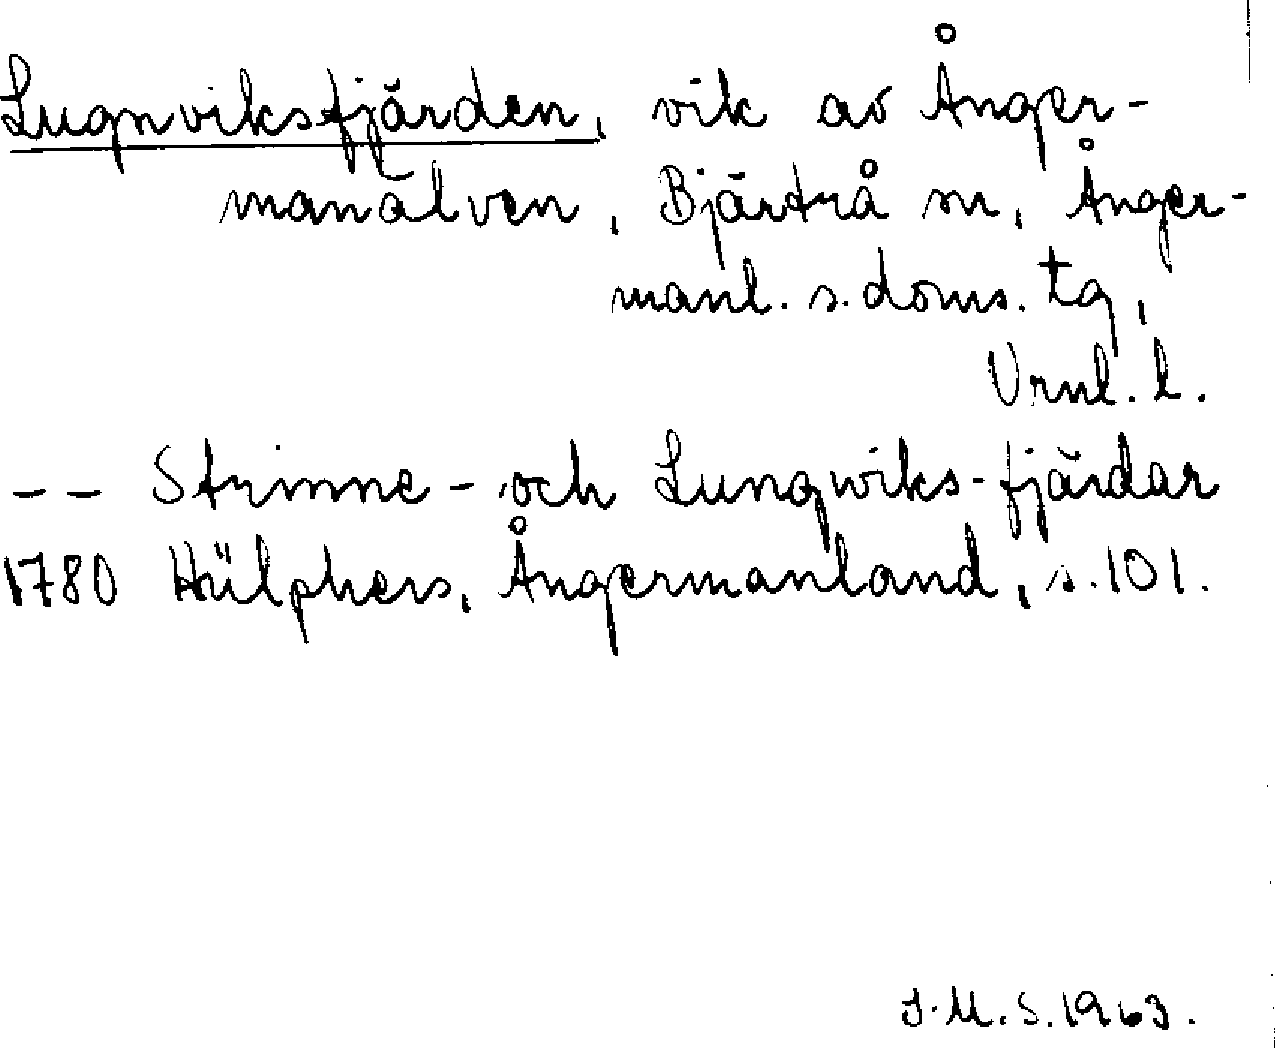 Lugnviksfjärden, vik av Ånger-
manälven, Bjärtrå sn, Ånger-
manl. s. doms. tg,
Vrnl. l.
-- Strinne- och Lungwiks-fjärdar
1780 Hülphers, Ångermanland, s. 101.
I.M.S. 1963.